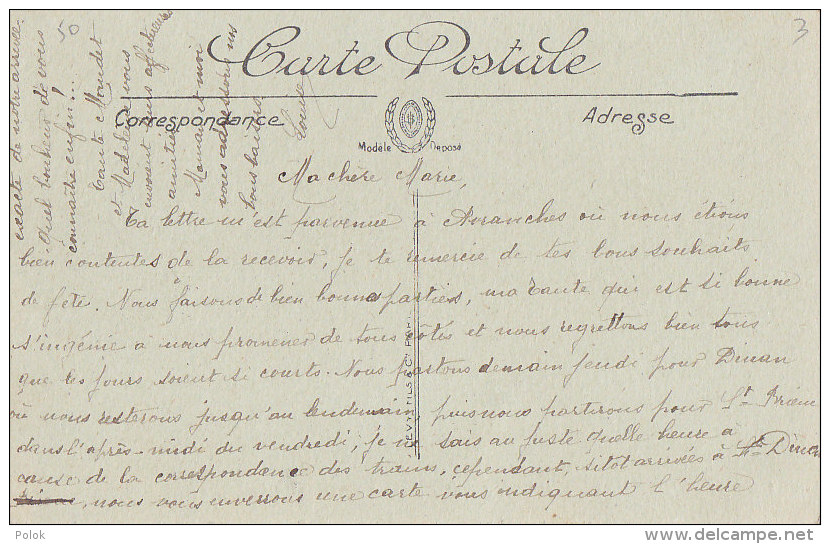 50
3
Carte Postale
Correspondance
Adresse
Modèle Déposé
LEVY FILS & Cie PARIS
Ma chère Marie,
Ta lettre m'est parvenue à Avranches où nous étions
bien contentes de la recevoir, je te remercie de tes bons souhaits
de fête. Nous faisons de bien bonnes parties, ma tante qui est si bonne
s'ingénie à nous promener de tous côtés et nous regrettons bien tous
que les jours soient si courts. Nous partons demain jeudi pour Dinan
où nous resterons jusqu'au lendemain, puis nous partirons pour St Brieuc
dans l'après-midi du vendredi, je ne sais au juste quelle heure à
cause de la correspondance des trains, cependant, sitôt arrivées à Dinan
, nous vous enverrons une carte vous indiquant l'heure
exacte de notre arrivée.
Quel bonheur de vous
connaître enfin...
Tante Maudet
et Madeleine vous
envoient leurs affectueuses
amitiés
Maman et moi
vous adressons nos
bons baisers
Louise
Polok
delcampe.net